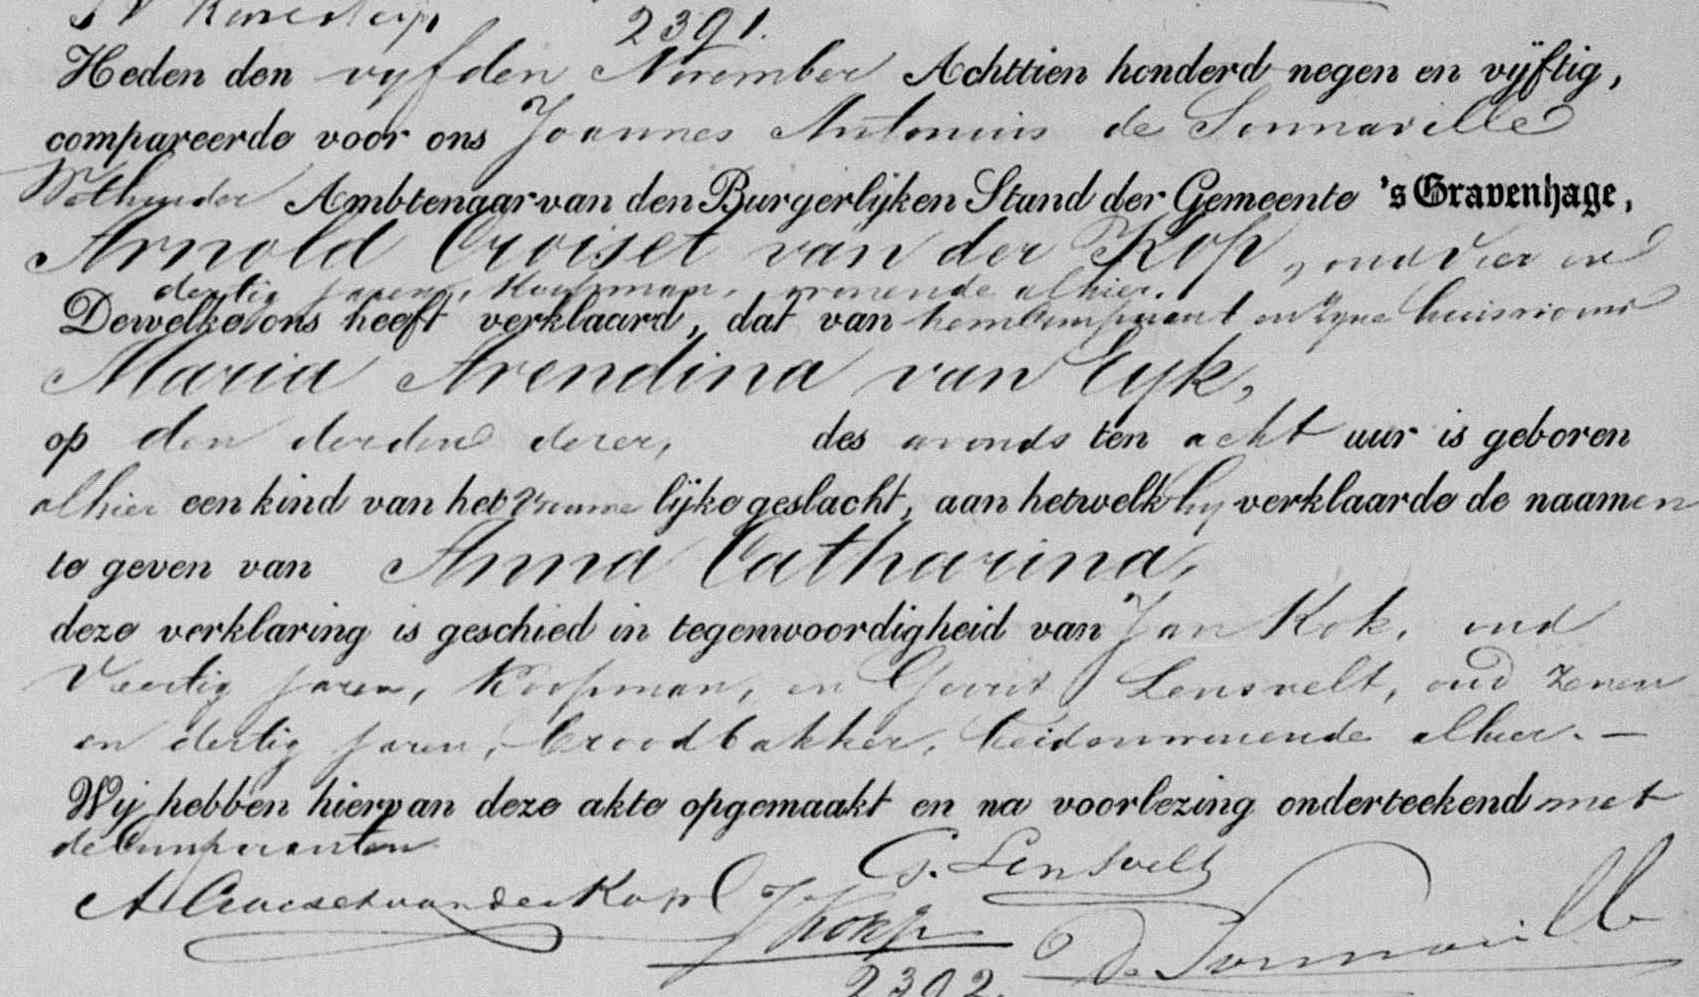 2391.
Heden den vyfden November Achttien honderd negen en vÿftig,
compareerde voor ons Joannes Antonius de Sonnaville
Wethouder Ambtenaar van den Burgerlijken Stand der Gemeente 's Gravenhage,
Arnold Croiset van der Kop, oud vier en
dertig jaren, Koopman, wonende alhier.
Dewelke ons heeft verklaard, dat van hem Comparant en zyne huisvrouw
Maria Arendina van Eyk,
op den derden dezer, des avonds ten acht uur is geboren
alhier een kind van het vrouwelijke geslacht, aan hetwelk hy verklaarde de naamen
te geven van Anna Catharina,
deze verklaring is geschied in tegenwoordigheid van Jan Kok, oud
Veertig jaren, Koopman, en Gerrit Lensvelt, oud zeven
en dertig jaren, broodbakker, beiden wonende alhier. —
Wij hebben hiervan deze akte opgemaakt en na voorlezing onderteekend met
de Comparanten
G. Lensvelt
A Croiset van der Kop J Kok
de Sonnaville
2392.